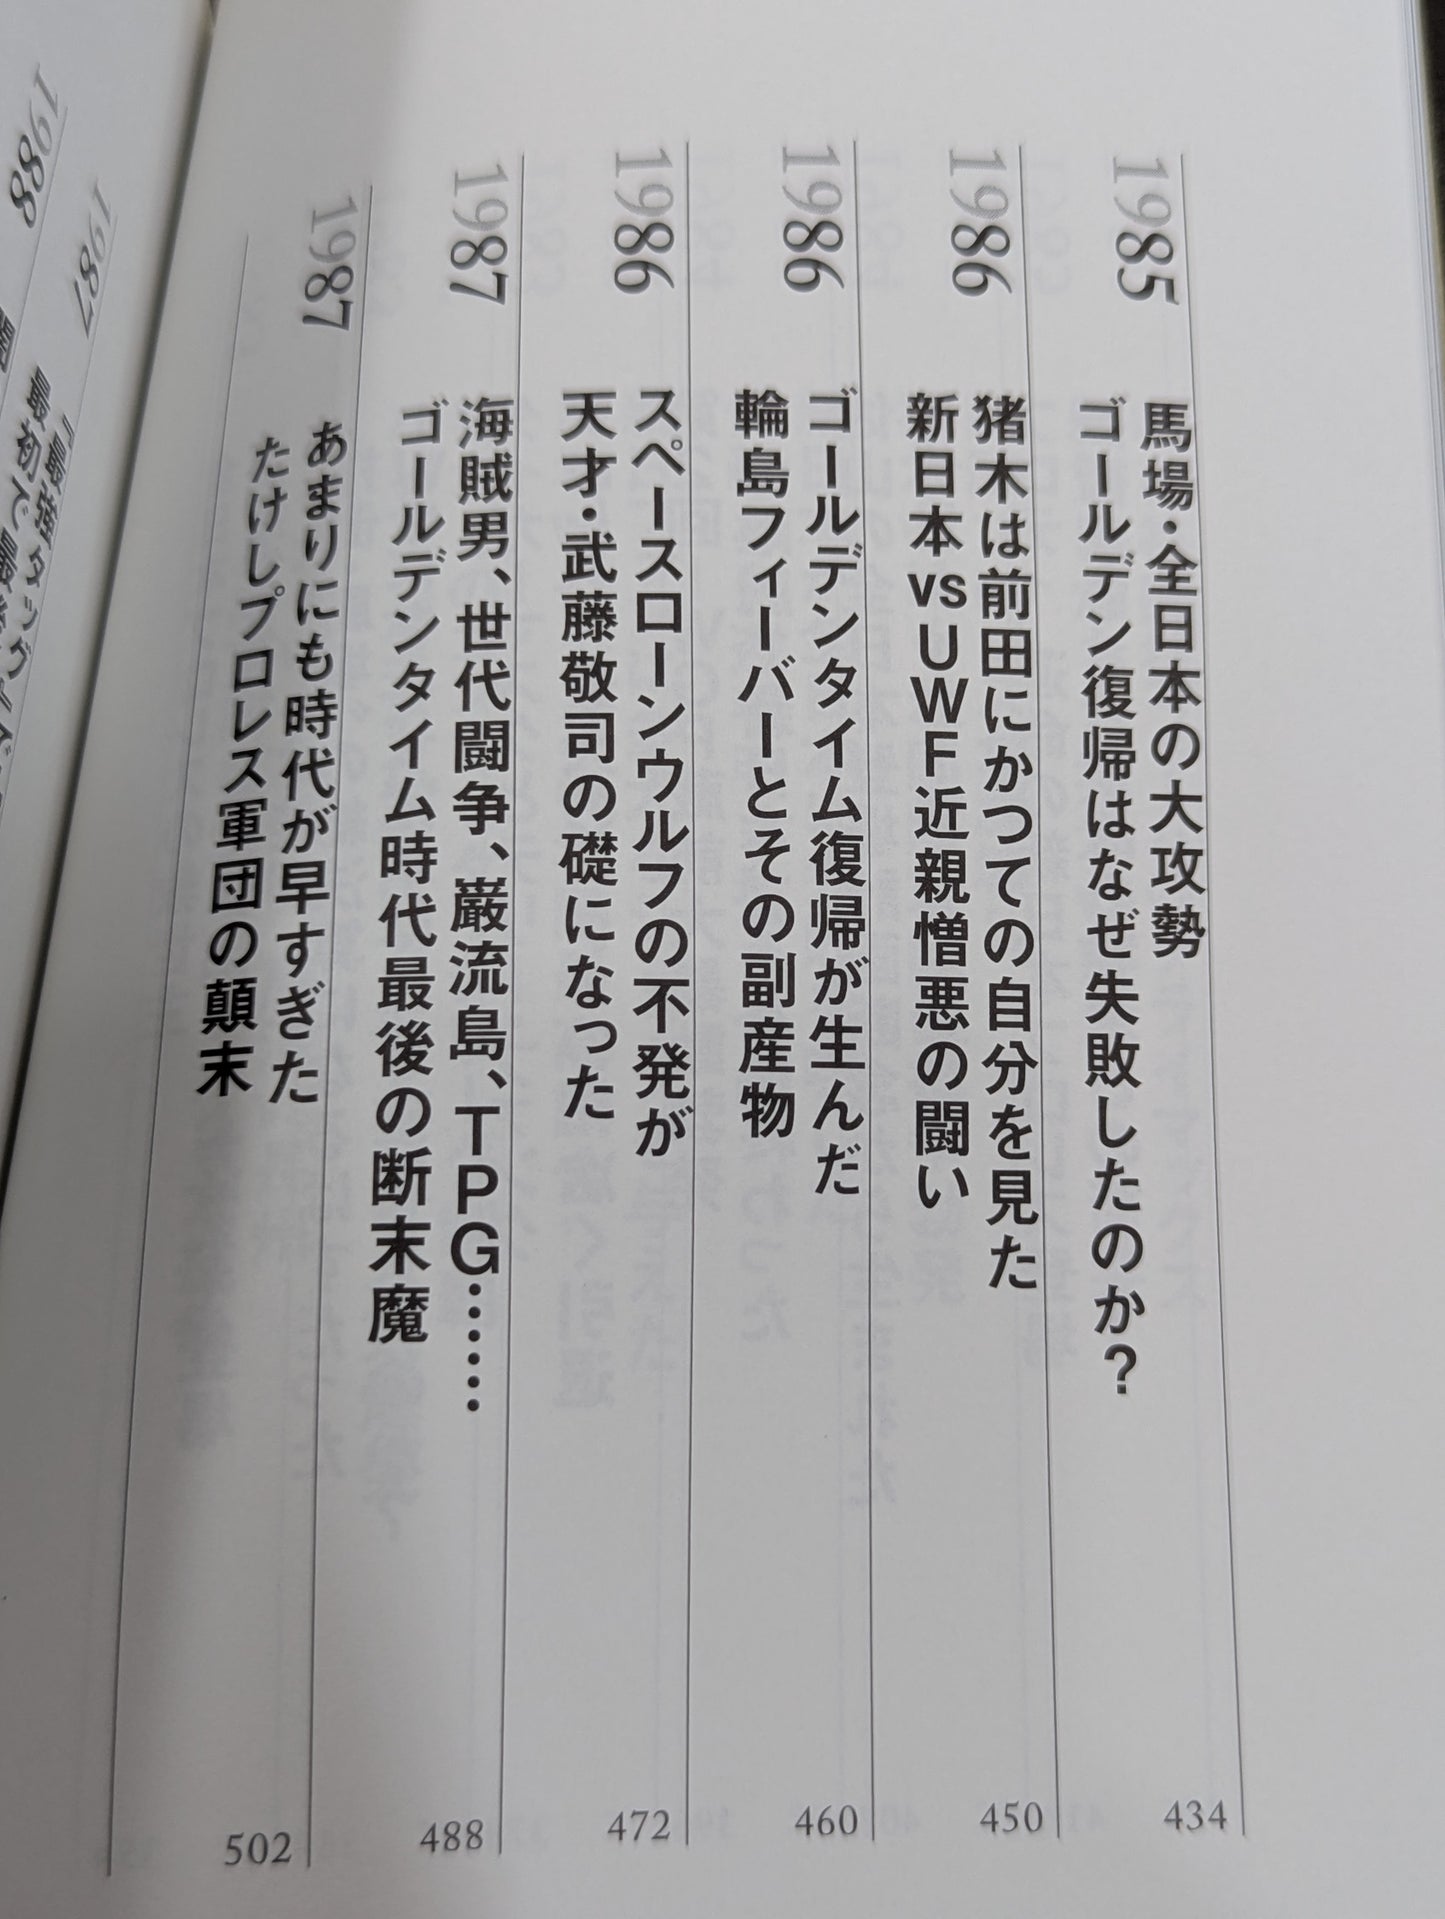 1985
馬場・全日本の大攻勢
ゴールデン復帰はなぜ失敗したのか？
434
1986
猪木は前田にかつての自分を見た
新日本vsUWF近親憎悪の闘い
450
1986
ゴールデンタイム復帰が生んだ
輪島フィーバーとその副産物
460
1986
スペースローンウルフの不発が
天才・武藤敬司の礎になった
472
1987
海賊男、世代闘争、巌流島、TPG……
ゴールデンタイム時代最後の断末魔
488
1987
あまりにも時代が早すぎた
たけしプロレス軍団の顛末
502
1987
1988
最初で最